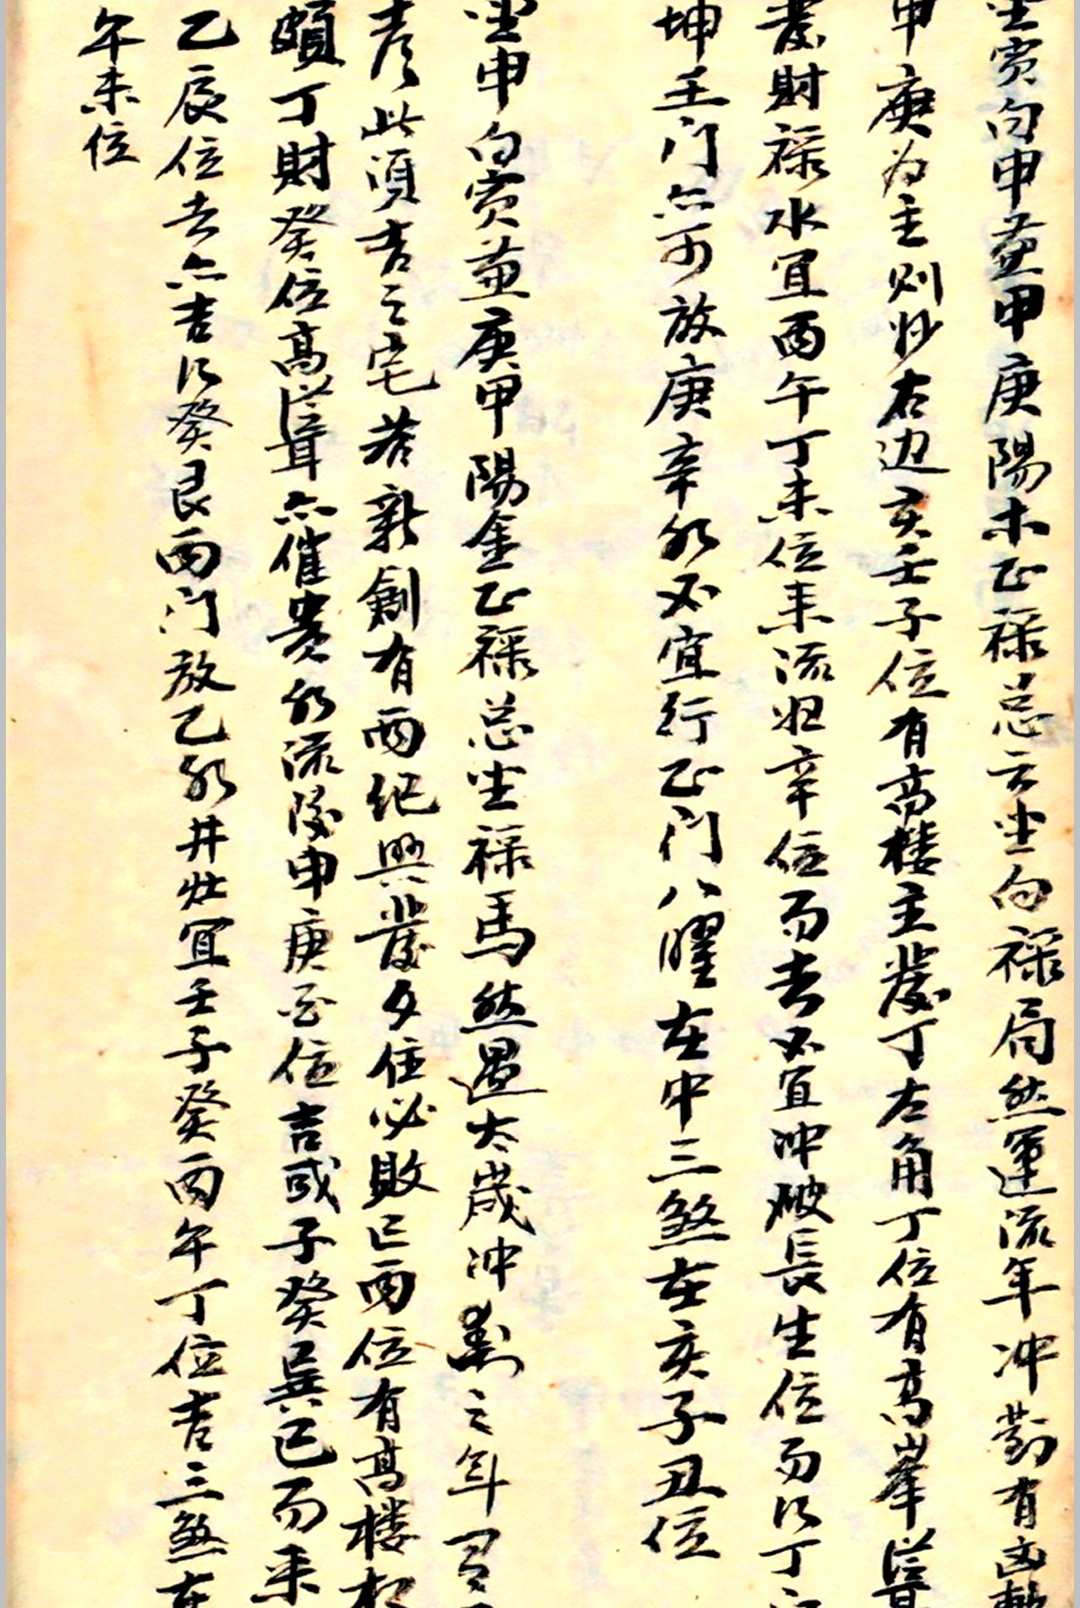 坐寅向申兼甲庚陽木正祿总云坐向祿局然運流年冲對有凶
甲庚为主则妙右边亥壬子位有高楼主發丁左角丁位有高峯聳
發財祿水宜丙午丁未位来流归辛位而去不宜冲破長生位而以丁
坤壬门亦可放庚辛水不宜行正门八曜在中三煞在亥子丑位
坐申向寅兼庚甲陽金正祿总坐祿馬然遇太歲冲對之年
此須吉之宅若新創有两纪興發久住必敗巳丙位有高楼
頗丁財癸位高聳亦催贵水流後申庚酉位吉或子癸巽巳而来
乙辰位去亦吉以癸艮丙门放乙水井灶宜壬子癸丙午丁位吉三煞在
午未位